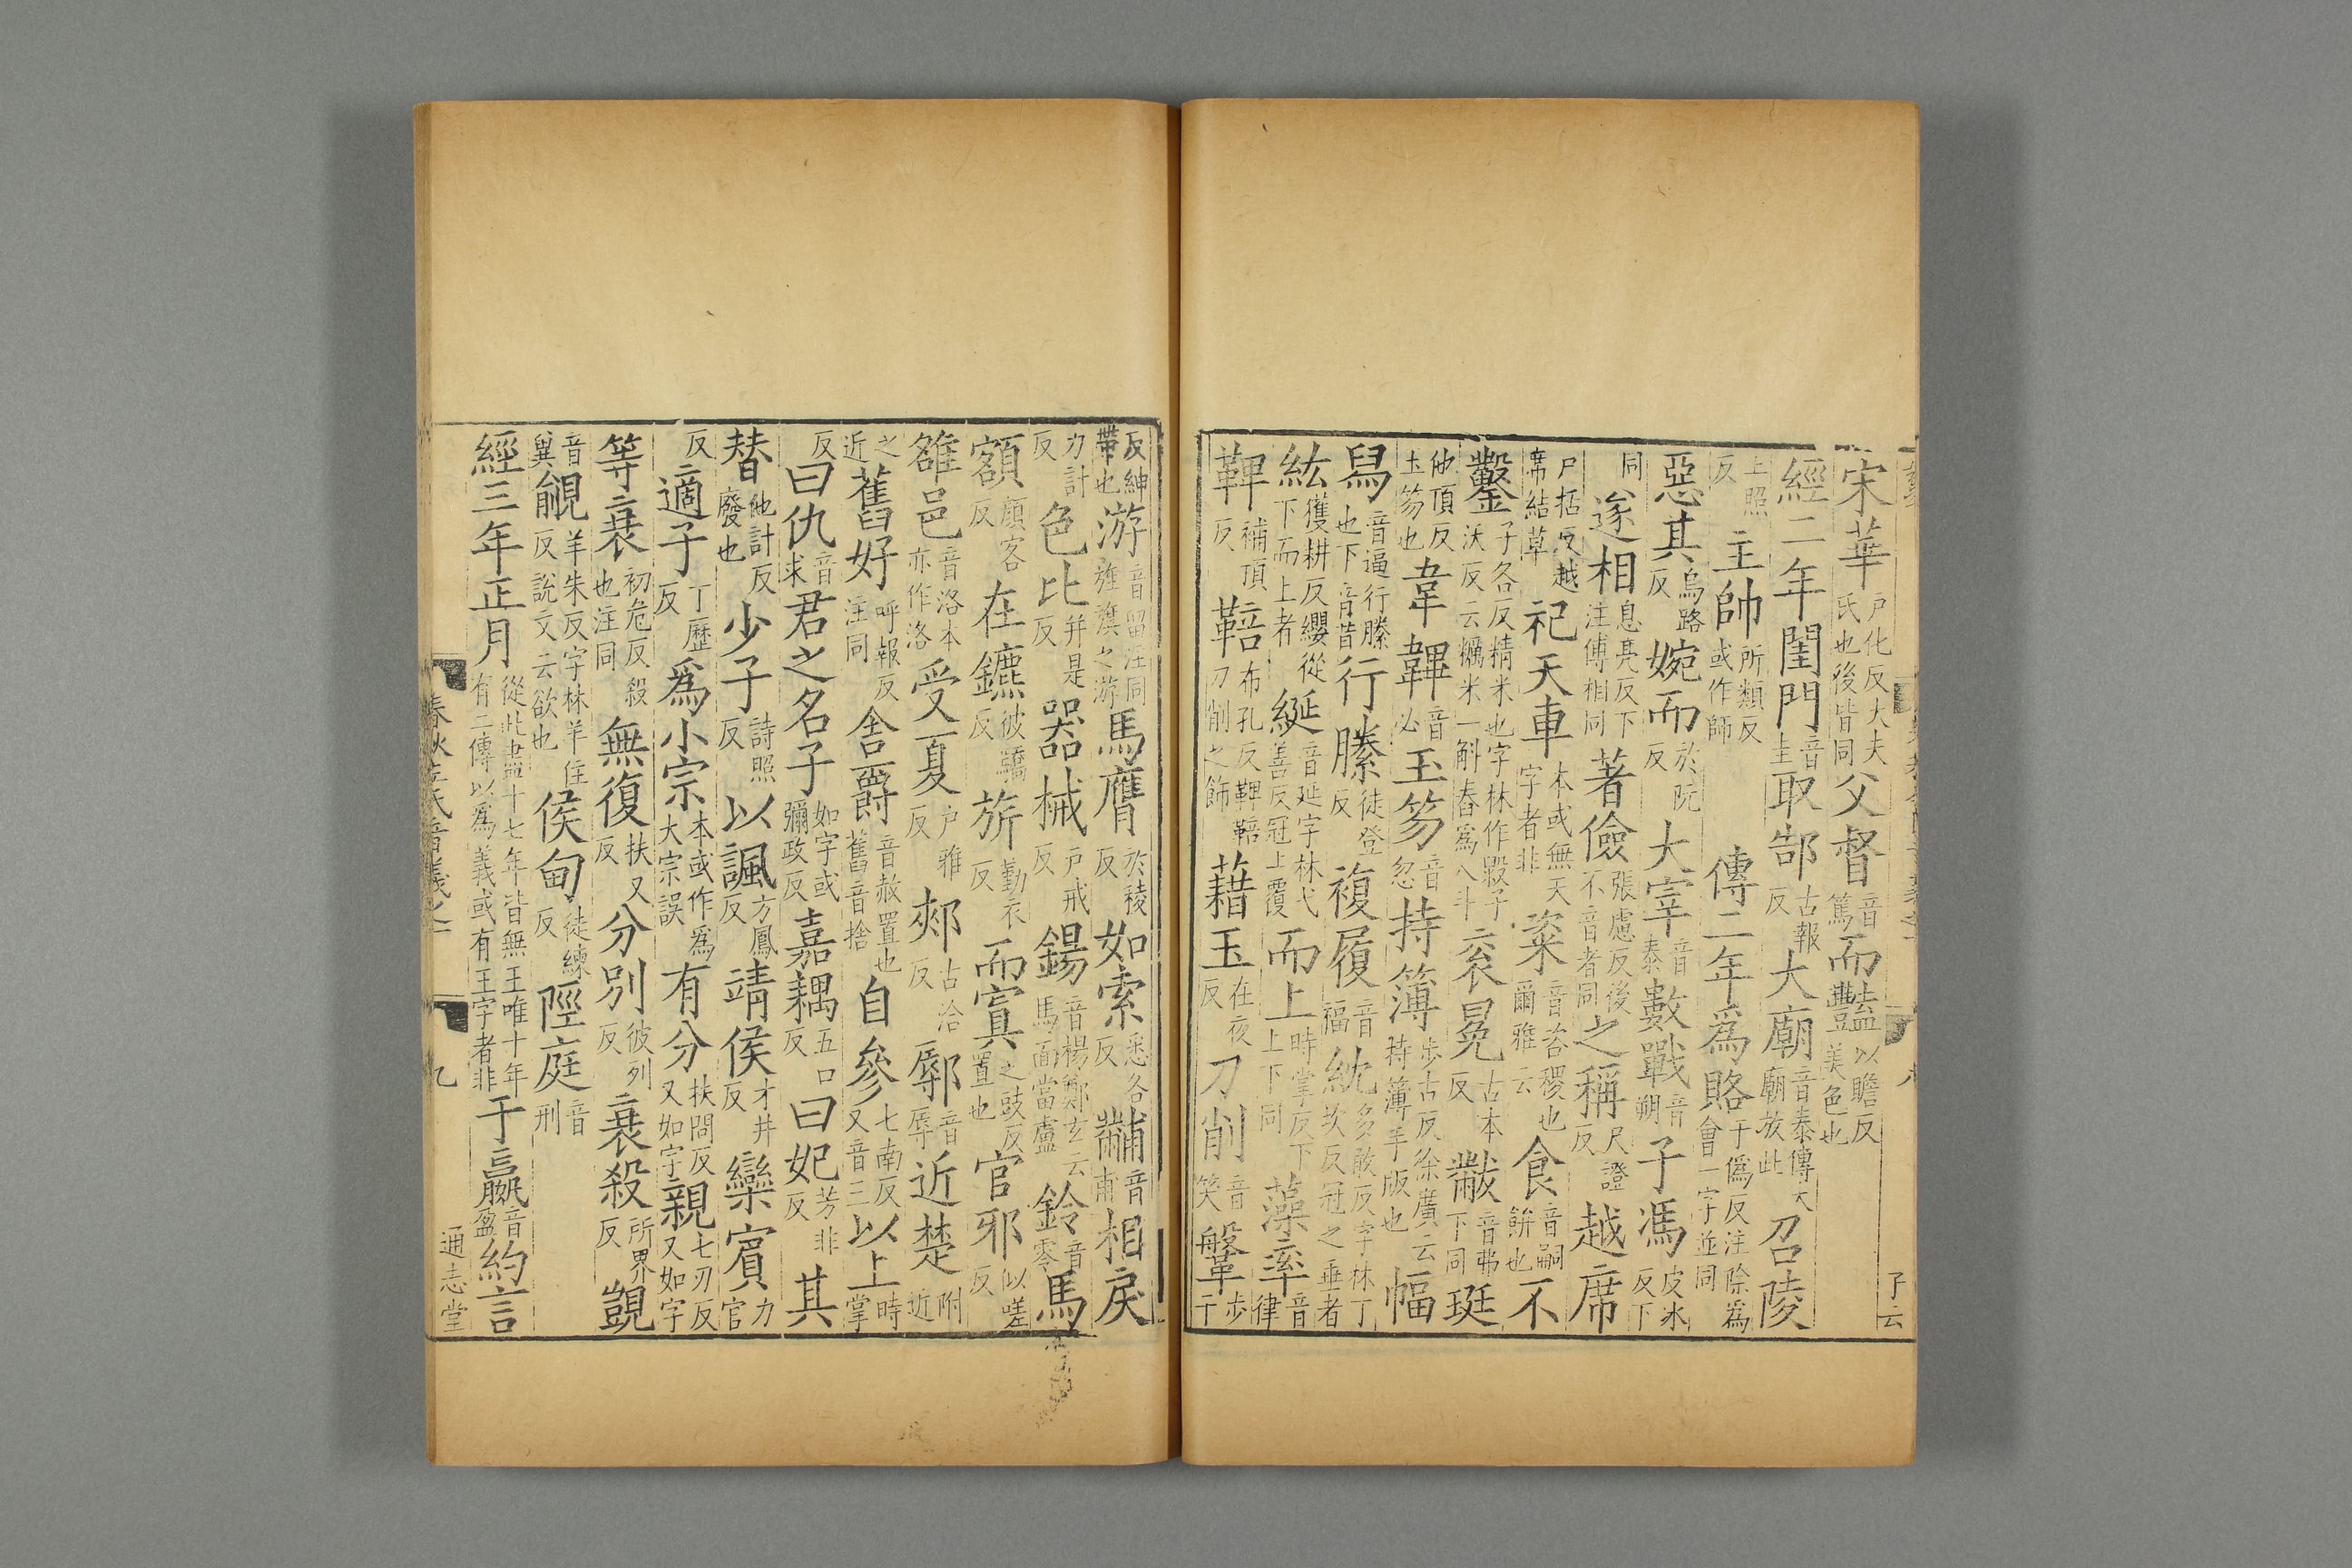 宋華戶化反大夫氏也後皆同父督音篤而豔以贍反美色也
經二年閨門音圭取郜古報反大廟音泰傳大廟放此召陵
上照反主帥所類反或作師傳二年爲賂于僞反注除爲會一字並同
惡其烏路反婉而於阮反大宰音泰數戰音朔子馮皮冰反下
同遂相息亮反下注傅相同著儉張慮反後不音者同之稱尺證反越席
戶括反越席結草祀天車本或無天字者非粢音咨稷也爾雅云食音嗣餅也不
鑿子各反精米也字林作毇子沃反云糲米一斛舂爲八斗衮冕古本反黻音弗下同珽
他頂反玉笏也韋韠音必玉笏音忽持簿步古反徐廣云持簿手版也幅
舄音昔音逼行縢也下行縢徒登反複履音福紞多敢反字林丁坎反冠之垂者
紘獲耕反纓從下而上者綖音延字林弋善反冠上覆而上時掌反下上下同藻率音律
鞞補頂反鞛布孔反鞞鞛刀削之飾藉玉在夜反刀削音笑鞶步干
反紳帶也游音留注同旌旗之游馬膺於稜反如索悉各反黼音甫相戾
力計反色比并是反器械戶戒反鍚音楊鄭玄云馬面當盧鈴音零馬
額顏客反在鑣彼驕反旂勤衣反而寘之豉反置也官邪似嗟反
雒邑音洛本亦作洛受夏戶雅反郟古洽反鄏音辱近楚附近
之近舊好呼報反注同舍爵音赦置也舊音捨自參七南反又音三以上時掌
反曰仇音求君之名子如字或彌政反嘉耦五口反曰妃芳非反其
替他計反廢也少子詩照反以諷方鳳反靖侯才井反欒賓力官
反適子丁歷反爲小宗本或作爲大宗誤有分扶問反又如字親七刃反又如字
等衰初危反殺也注同無復扶又反分別彼列反衰殺所界反覬
音冀覦羊朱反字林羊住反說文云欲也侯甸徒練反陘庭音刑
經三年正月從此盡十七年皆無王唯十年有二傳以爲義或有王字者非于嬴音盈約言
春秋左氏音義之一
九
通志堂
八
子云